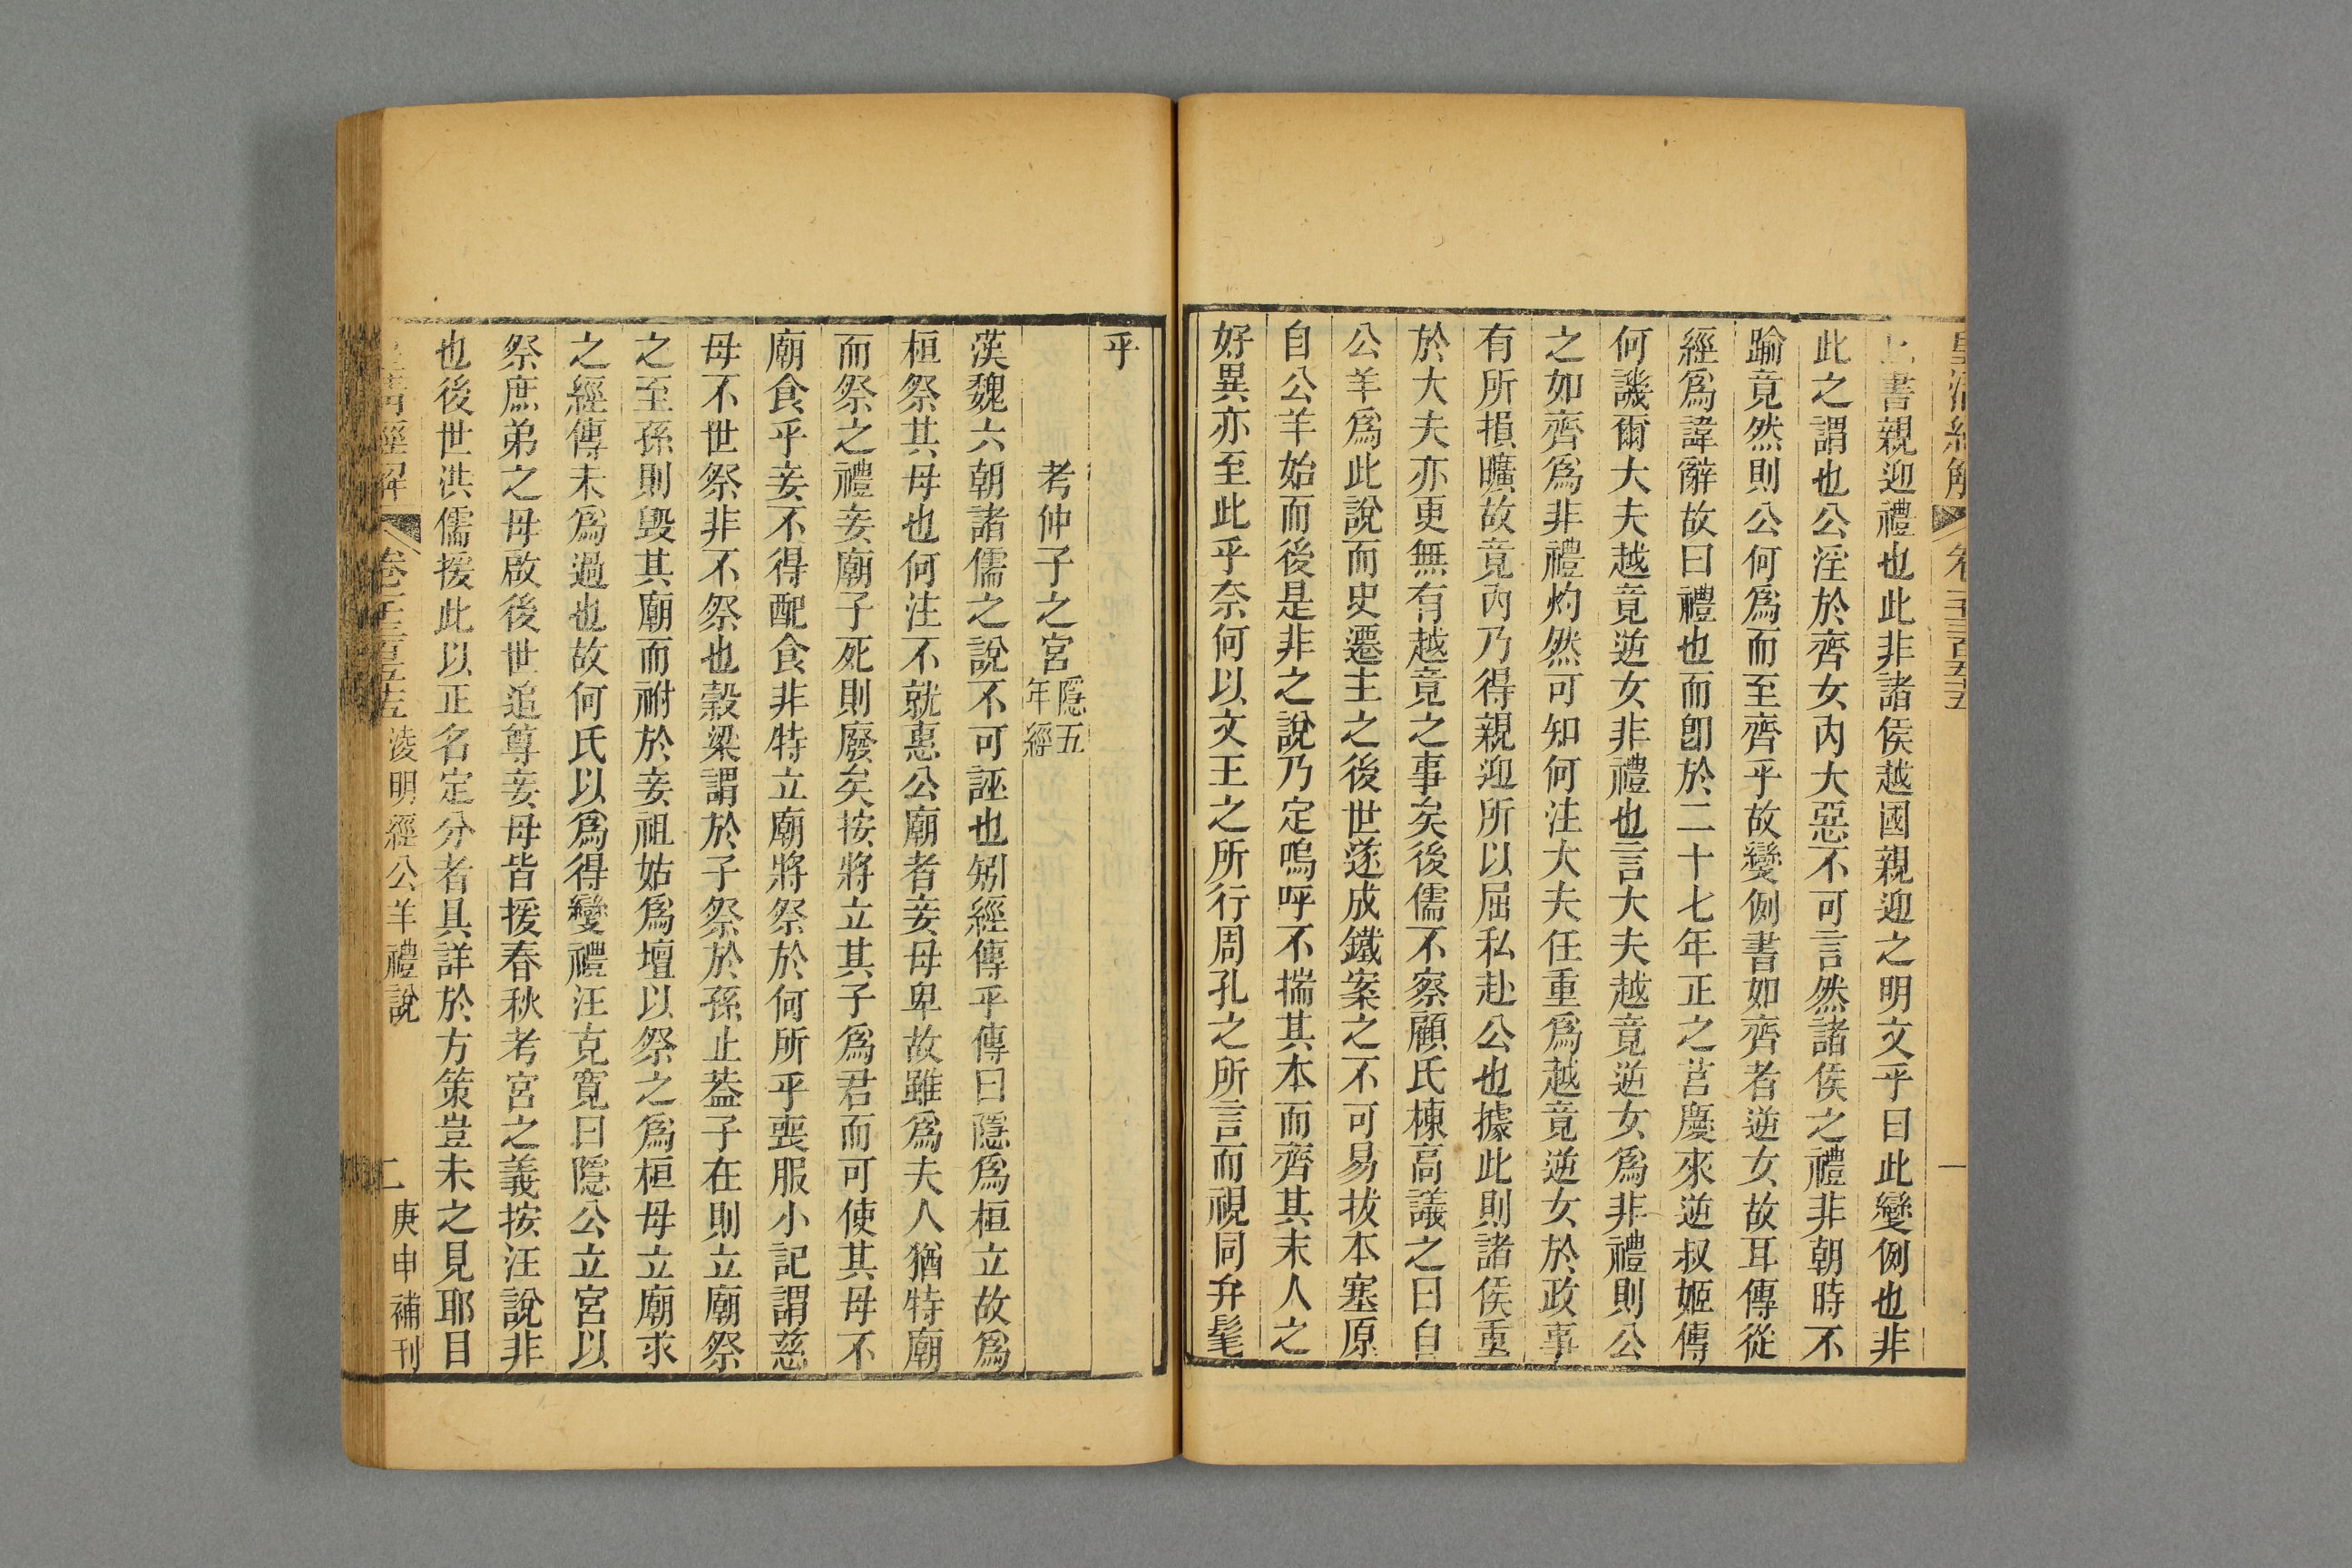 書親迎禮也此非諸侯越國親迎之明文乎曰此變例也非
此之謂也公淫於齊女內大惡不可言然諸侯之禮非朝時不
踰竟然則公何爲而至齊乎故變例書如齊者逆女故耳傳從
經爲諱辭故曰禮也而卽於二十七年正之莒慶來逆叔姬傳
何譏爾大夫越竟逆女非禮也言大夫越竟逆女爲非禮則公
之如齊爲非禮灼然可知何注大夫任重爲越竟逆女於政事
有所損曠故竟內乃得親迎所以屈私赴公也據此則諸侯重
於大夫亦更無有越竟之事矣後儒不察顧氏棟高議之曰自
公羊爲此說而史遷主之後世遂成鐵案之不可易拔本塞原
自公羊始而後是非之說乃定嗚呼不揣其本而齊其末人之
好異亦至此乎奈何以文王之所行周孔之所言而視同弁髦
乎
考仲子之宮隱五年經
漢魏六朝諸儒之說不可誣也矧經傳乎傳曰隱爲桓立故爲
桓祭其母也何注不就惠公廟者妾母卑故雖爲夫人猶特廟
而祭之禮妾廟子死則廢矣按將立其子爲君而可使其母不
廟食乎妾不得配食非特立廟將祭於何所乎喪服小記謂慈
母不世祭非不祭也穀梁謂於子祭於孫止葢子在則立廟祭
之至孫則毁其廟而祔於妾祖姑爲壇以祭之爲桓母立廟求
之經傳未爲過也故何氏以爲得變禮汪克寬曰隱公立宮以
祭庶弟之母啟後世追尊妾母皆援春秋考宮之義按汪說非
也後世洪儒援此以正名定分者具詳於方策豈未之見耶目
經解 卷 淩明經公羊禮說 二 庚申補刊